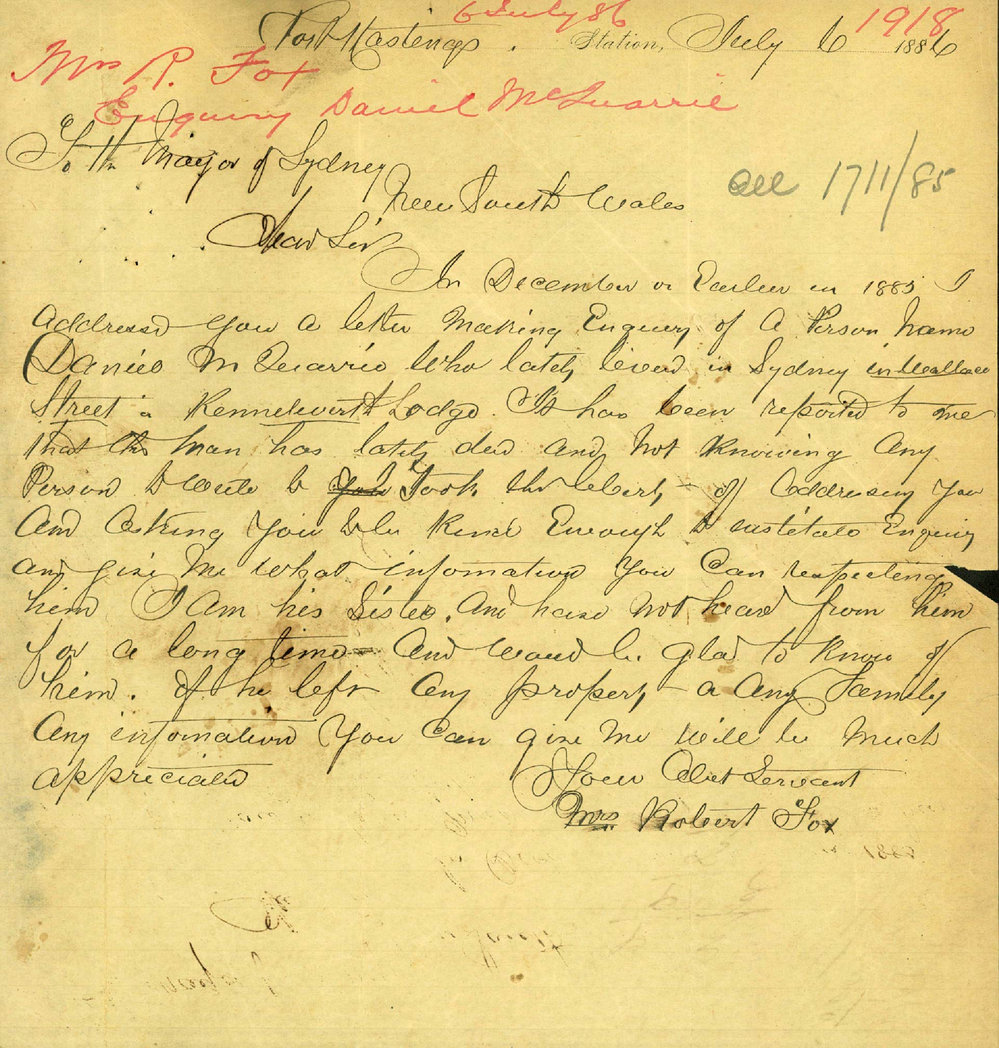 6 July 86
1918
Port Hastings. Station, July 6 1886
Mrs R. Fox
Enquiry Daniel McQuarrie
To the Mayor of Sydney
New South Wales
1711/85
Dear Sir
In December or Earlier in 1885 I
addressed you a letter Making Enquiry of A Person Name
(Daniel McQuarrie Who lately lived in Sydney in Wallace
Street in Kennelworth Lodge. It has been reported to me
that this Man has lately died and Not Knowing Any
Person to write to you I took the liberty of addressing you
And Asking You to be Kind Enough to institute Enquiry
and give Me what infomation You Can respecting
him I Am his Sister. And have Not heard from him
for a long time And would be glad to Know of
him. if he left Any property or Any Family
Any infomation You Can give Me will be Much
appreciated
Your Obet Servant
Mrs Robert Fox